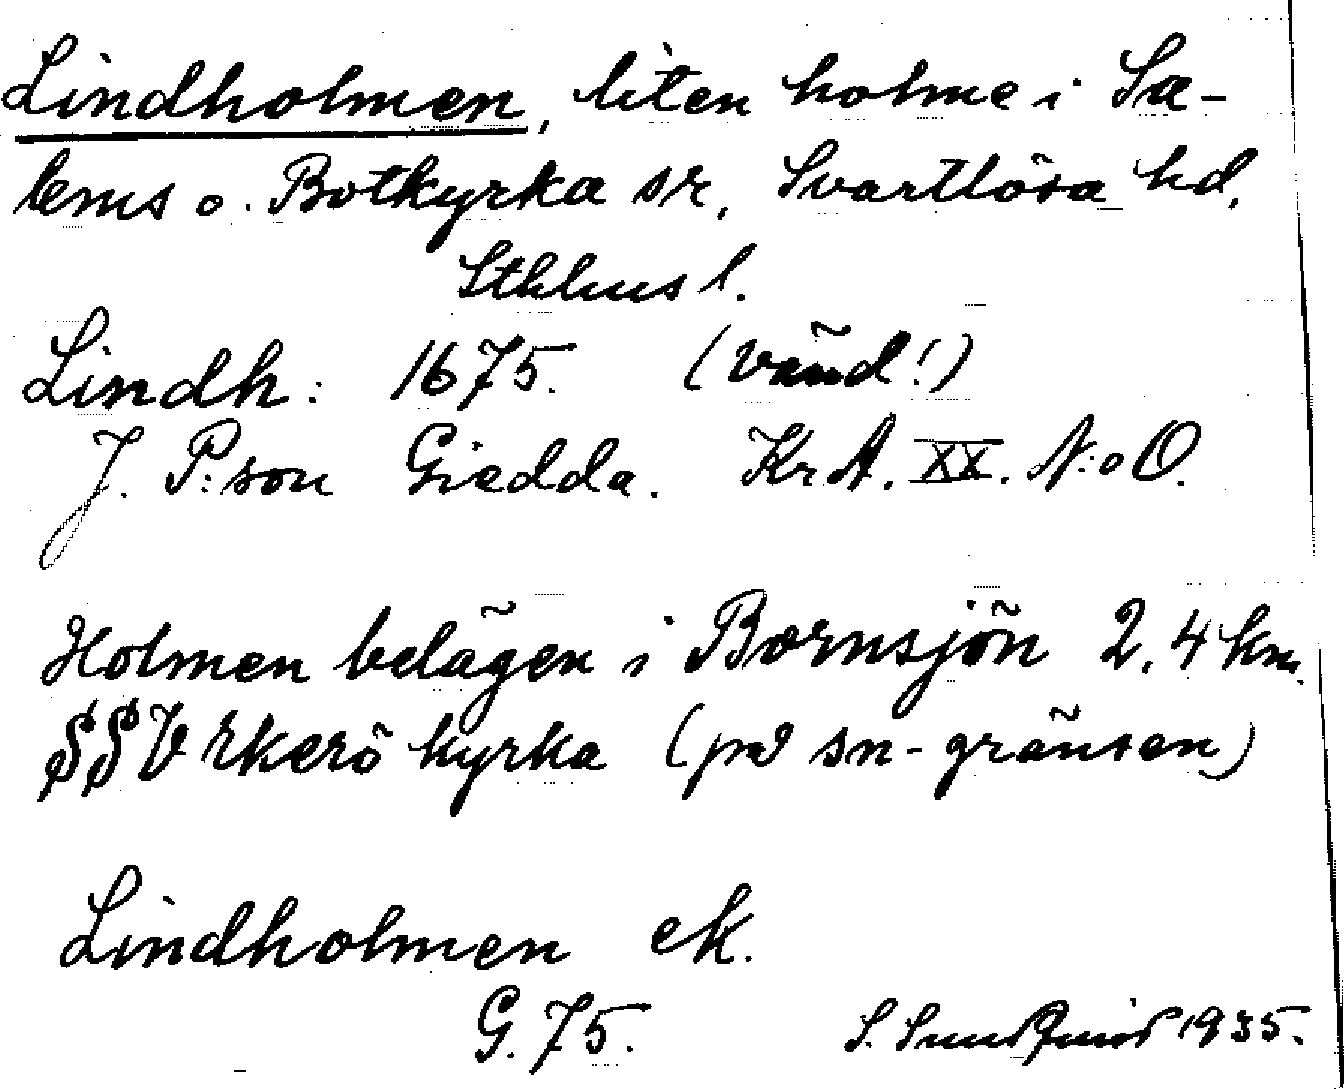 Lindholmen, liten holme i Sa-
lems o. Botkyrka sr, Svartlösa hd,
Sthlms l.
Lindh: 1675. (vänd!)
J. P:son Giedda. KrA. XX. N:o O.
Holmen belägen i Bornsjön 2,4 km.
SSV Ekerö kyrka (på sn-gränsen)
Lindholmen ek.
G. 75. S. Sundqvist 1935.